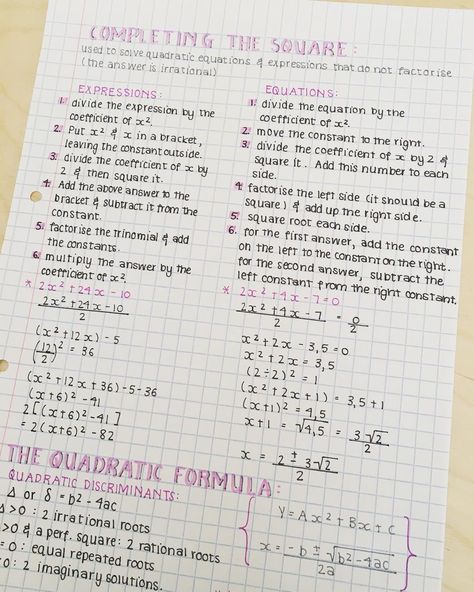 COMPLETING THE SQUARE:
used to solve quadratic equations & expressions that do not factorise
(the answer is irrational)
EXPRESSIONS:
1. divide the expression by the
coefficient of x².
2. Put x² & x in a bracket,
leaving the constant outside.
3. divide the coefficient of x by
2 & then square it.
4. Add the above answer to the
bracket & subtract it from the
constant.
5. factorise the trinomial & add
the constants.
6. multiply the answer by the
coefficient of x².
* 2x² + 24x - 10
2x² + 24x - 10
2
(x² + 12x) - 5
(12/2)² = 36
(x² + 12x + 36) - 5 - 36
(x+6)² - 41
2[(x+6)² - 41]
= 2(x+6)² - 82
EQUATIONS:
1. divide the equation by the
coefficient of x².
2. move the constant to the right.
3. divide the coefficient of x by 2 &
square it. Add this number to each
side.
4. factorise the left side (it should be a
square) & add up the right side.
5. square root each side.
6. for the first answer, add the constant
on the left to the constant on the right.
for the second answer, subtract the
left constant from the right constant.
* 2x² + 4x - 7 = 0
2x² + 4x - 7 = 0
2 2
x² + 2x - 3,5 = 0
x² + 2x = 3,5
(2÷2)² = 1
(x² + 2x + 1) = 3,5 + 1
(x+1)² = 4,5
x+1 = √4,5 = 3√2
2
x = 2 ± 3√2
2
THE QUADRATIC FORMULA:
QUADRATIC DISCRIMINANTS:
Δ or δ = b² - 4ac
Δ > 0 : 2 irrational roots
>0 & a perf. square: 2 rational roots
= 0 : equal repeated roots
0 : 2 imaginary solutions.
Y = Ax² + Bx + C
x = -b ± √b² - 4ac
2a